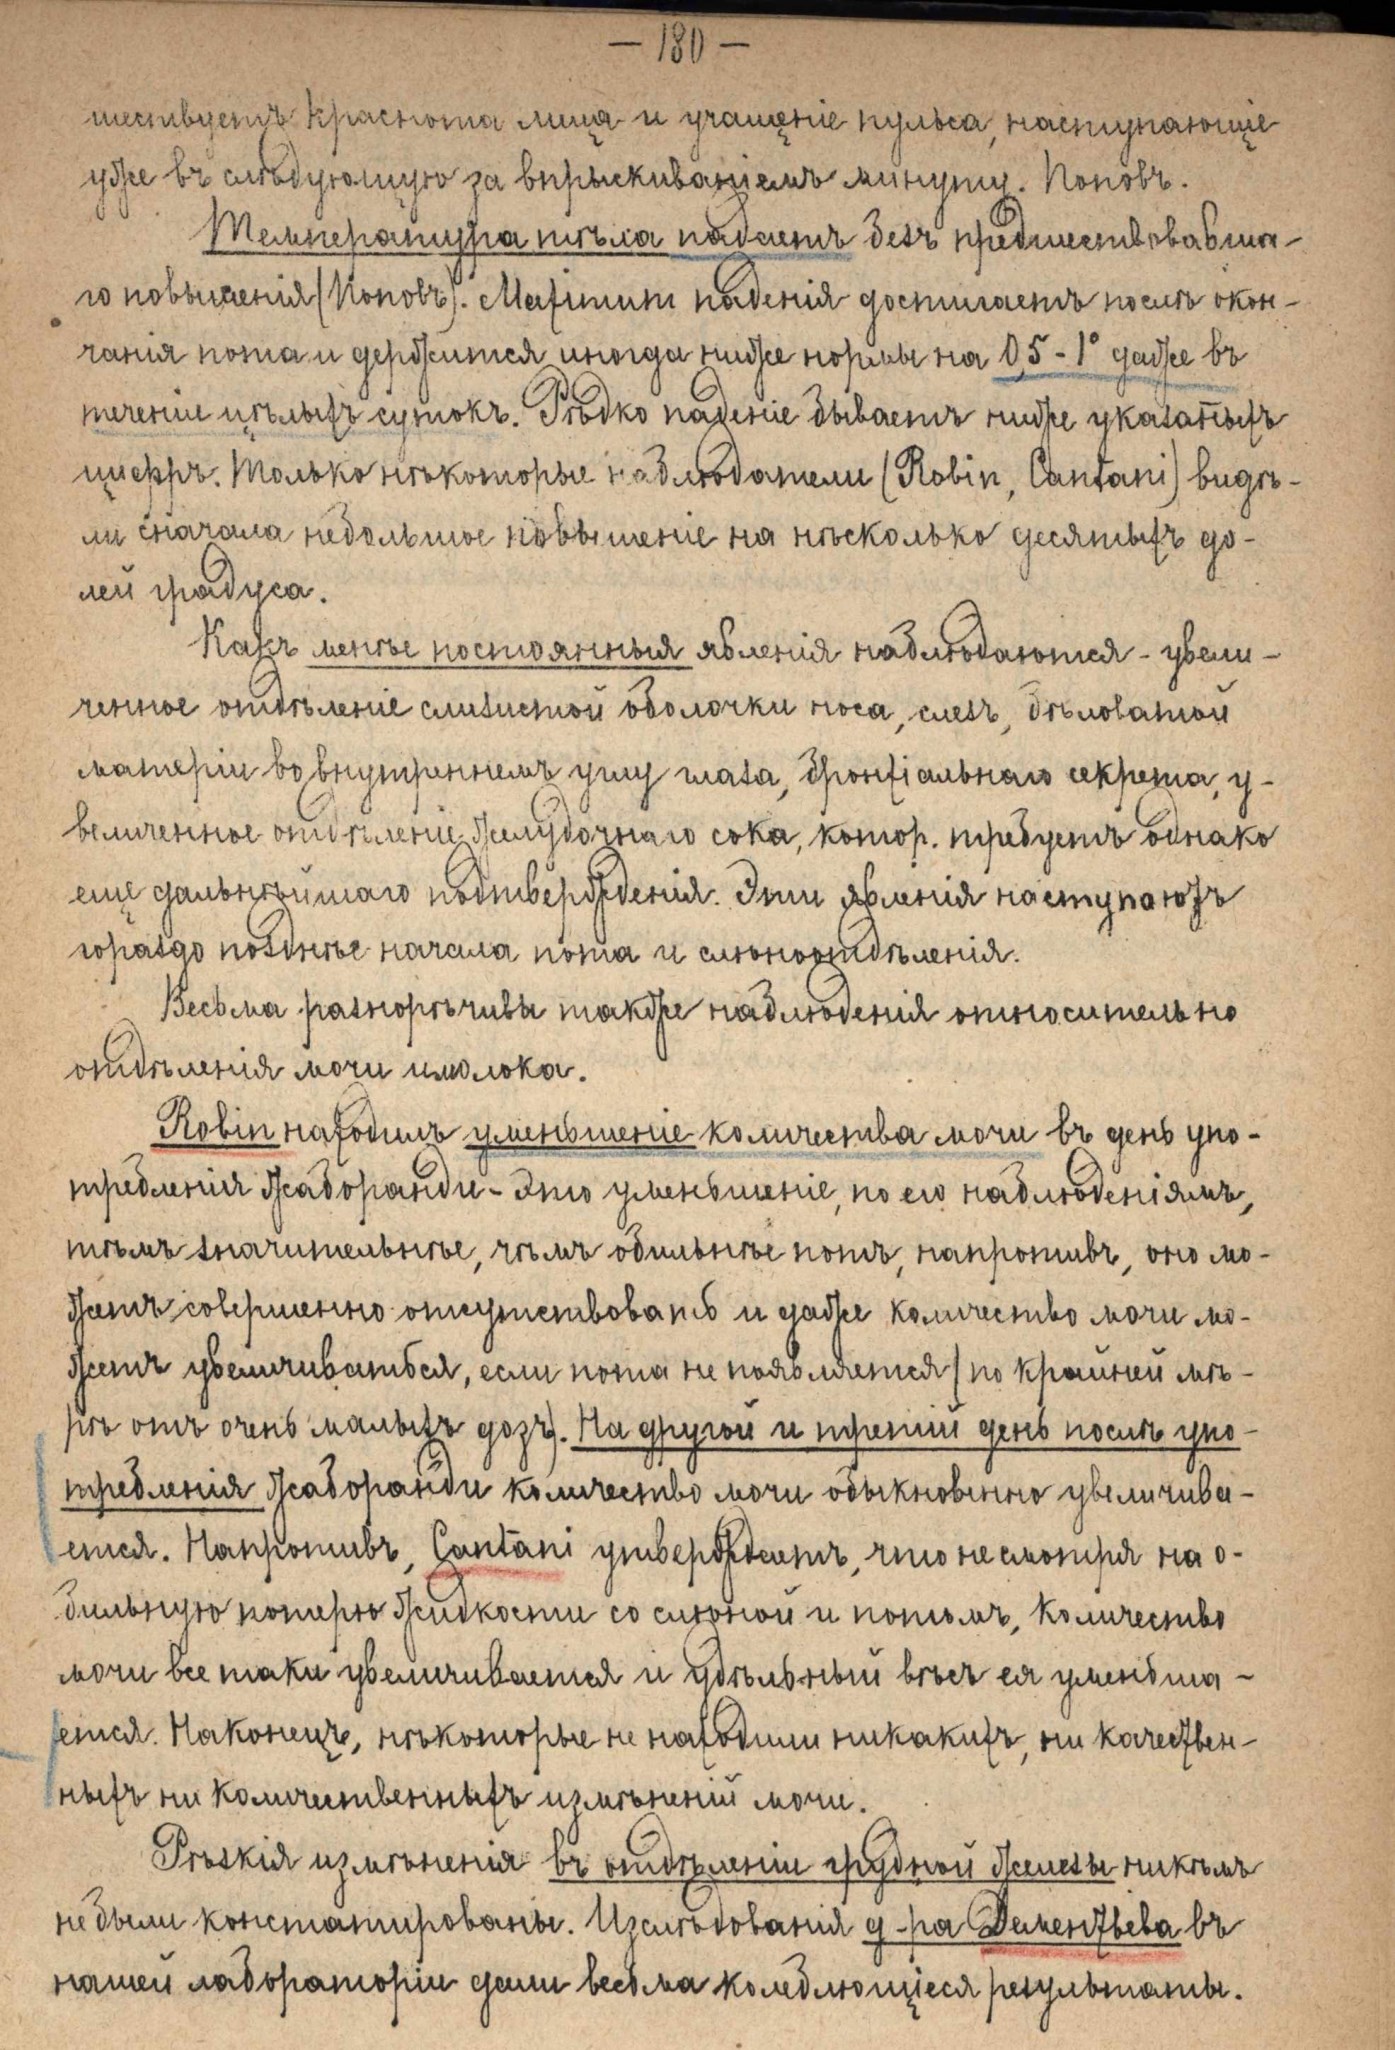 — 180 —
шествуетъ краснота лица и учащеніе пульса, наступающіе
уже въ слѣдующую за впрыскиваніемъ минуту. Поповъ.
Температура тѣла падаетъ безъ предшествовавша-
го повышенія (Поповъ). Maximum паденія достигаетъ послѣ окон-
чанія пота и держится иногда ниже нормы на 0,5 - 1° даже въ
теченіе цѣлыхъ сутокъ. Рѣдко паденіе бываетъ ниже указан̄ыхъ
цифръ. Только нѣкоторые наблюдатели (Robin, Cantani) видѣ-
ли сначала небольшое повышеніе на нѣсколько десятыхъ до-
лей градуса.
Какъ менѣе постоянныя явленія наблюдаются - увели-
ченное отдѣленіе слизистой оболочки носа, слезъ, бѣловатой
матеріи во внутреннемъ углу глаза, бронхіальнаго секрета, у-
величенное отдѣленіе желудочнаго сока, котор. требуетъ однако
еще дальнѣйшаго подтвержденія. Эти явленія наступаютъ
гораздо позднѣе начала пота и слюноотдѣленія.
Весьма разнорѣчивы также наблюденія относительно
отдѣленія мочи и молока.
Robin находилъ уменьшеніе количества мочи въ день упо-
требленія жаборанди - Это уменьшеніе, по его наблюденіямъ,
тѣмъ значительнѣе, чѣмъ обильнѣе потъ, напротивъ, оно мо-
жетъ совершенно отсутствовать и даже количество мочи мо-
жетъ увеличиваться, если пота не появляется (по крайней мѣ-
рѣ отъ очень малыхъ дозъ). На другой и третій день послѣ упо-
требленія жаборанди количество мочи обыкновенно увеличива-
ется. Напротивъ, Cantani утверждаетъ, что не смотря на о-
бильную потерю жидкости со слюной и потомъ, количество
мочи все таки увеличивается и удѣльный вѣсъ ея уменьша-
ется. Наконецъ, нѣкоторые не находили никакихъ, ни качествен-
ныхъ ни количественныхъ измѣненій мочи.
Рѣзкія измѣненія въ отдѣленіи грудной железы никѣмъ
не были констатированы. Изслѣдованія д-ра Дементьева въ
нашей лабораторіи дали весьма колеблющіеся результаты.